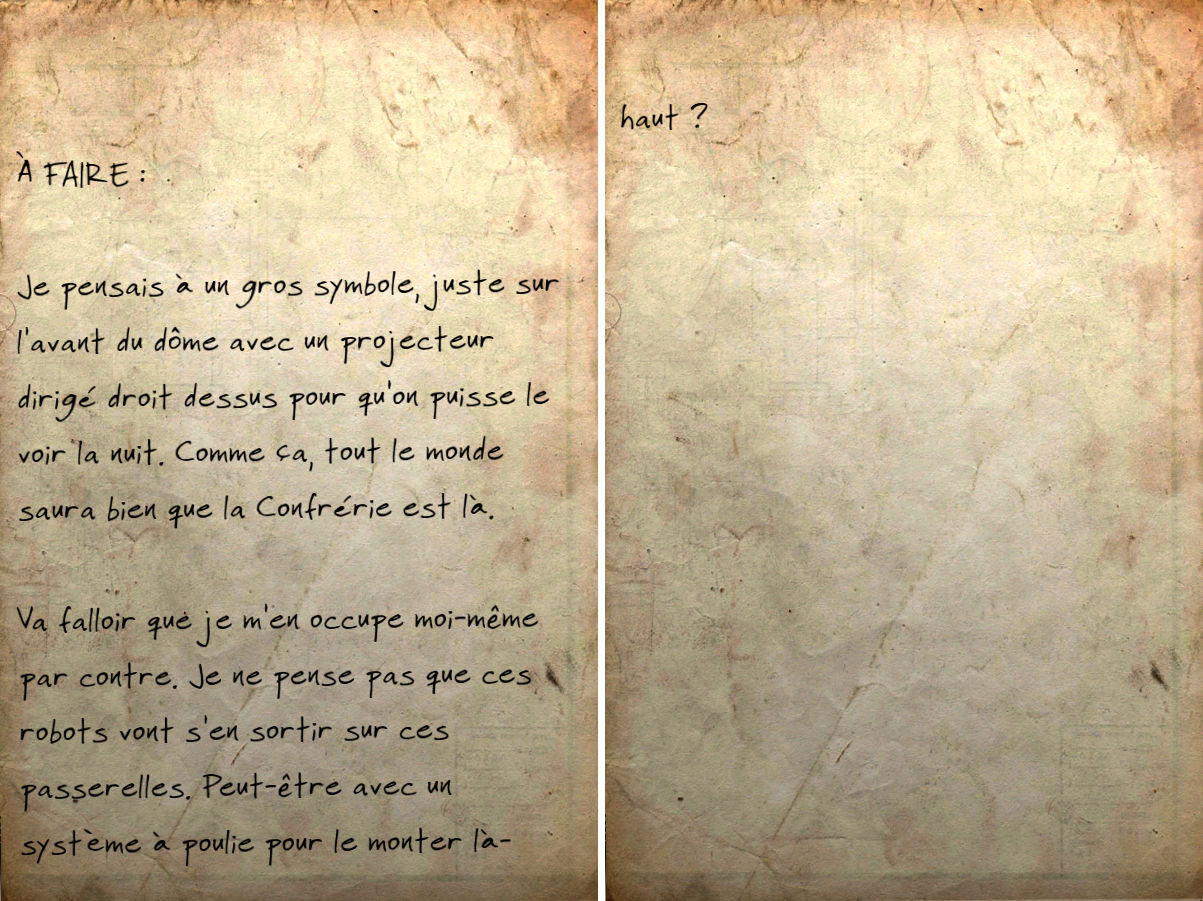 À FAIRE :
Je pensais à un gros symbole, juste sur
l'avant du dôme avec un projecteur
dirigé droit dessus pour qu'on puisse le
voir la nuit. Comme ça, tout le monde
saura bien que la Confrérie est là.
Va falloir que je m'en occupe moi-même
par contre. Je ne pense pas que ces
robots vont s'en sortir sur ces
passerelles. Peut-être avec un
système à poulie pour le monter là-
haut ?